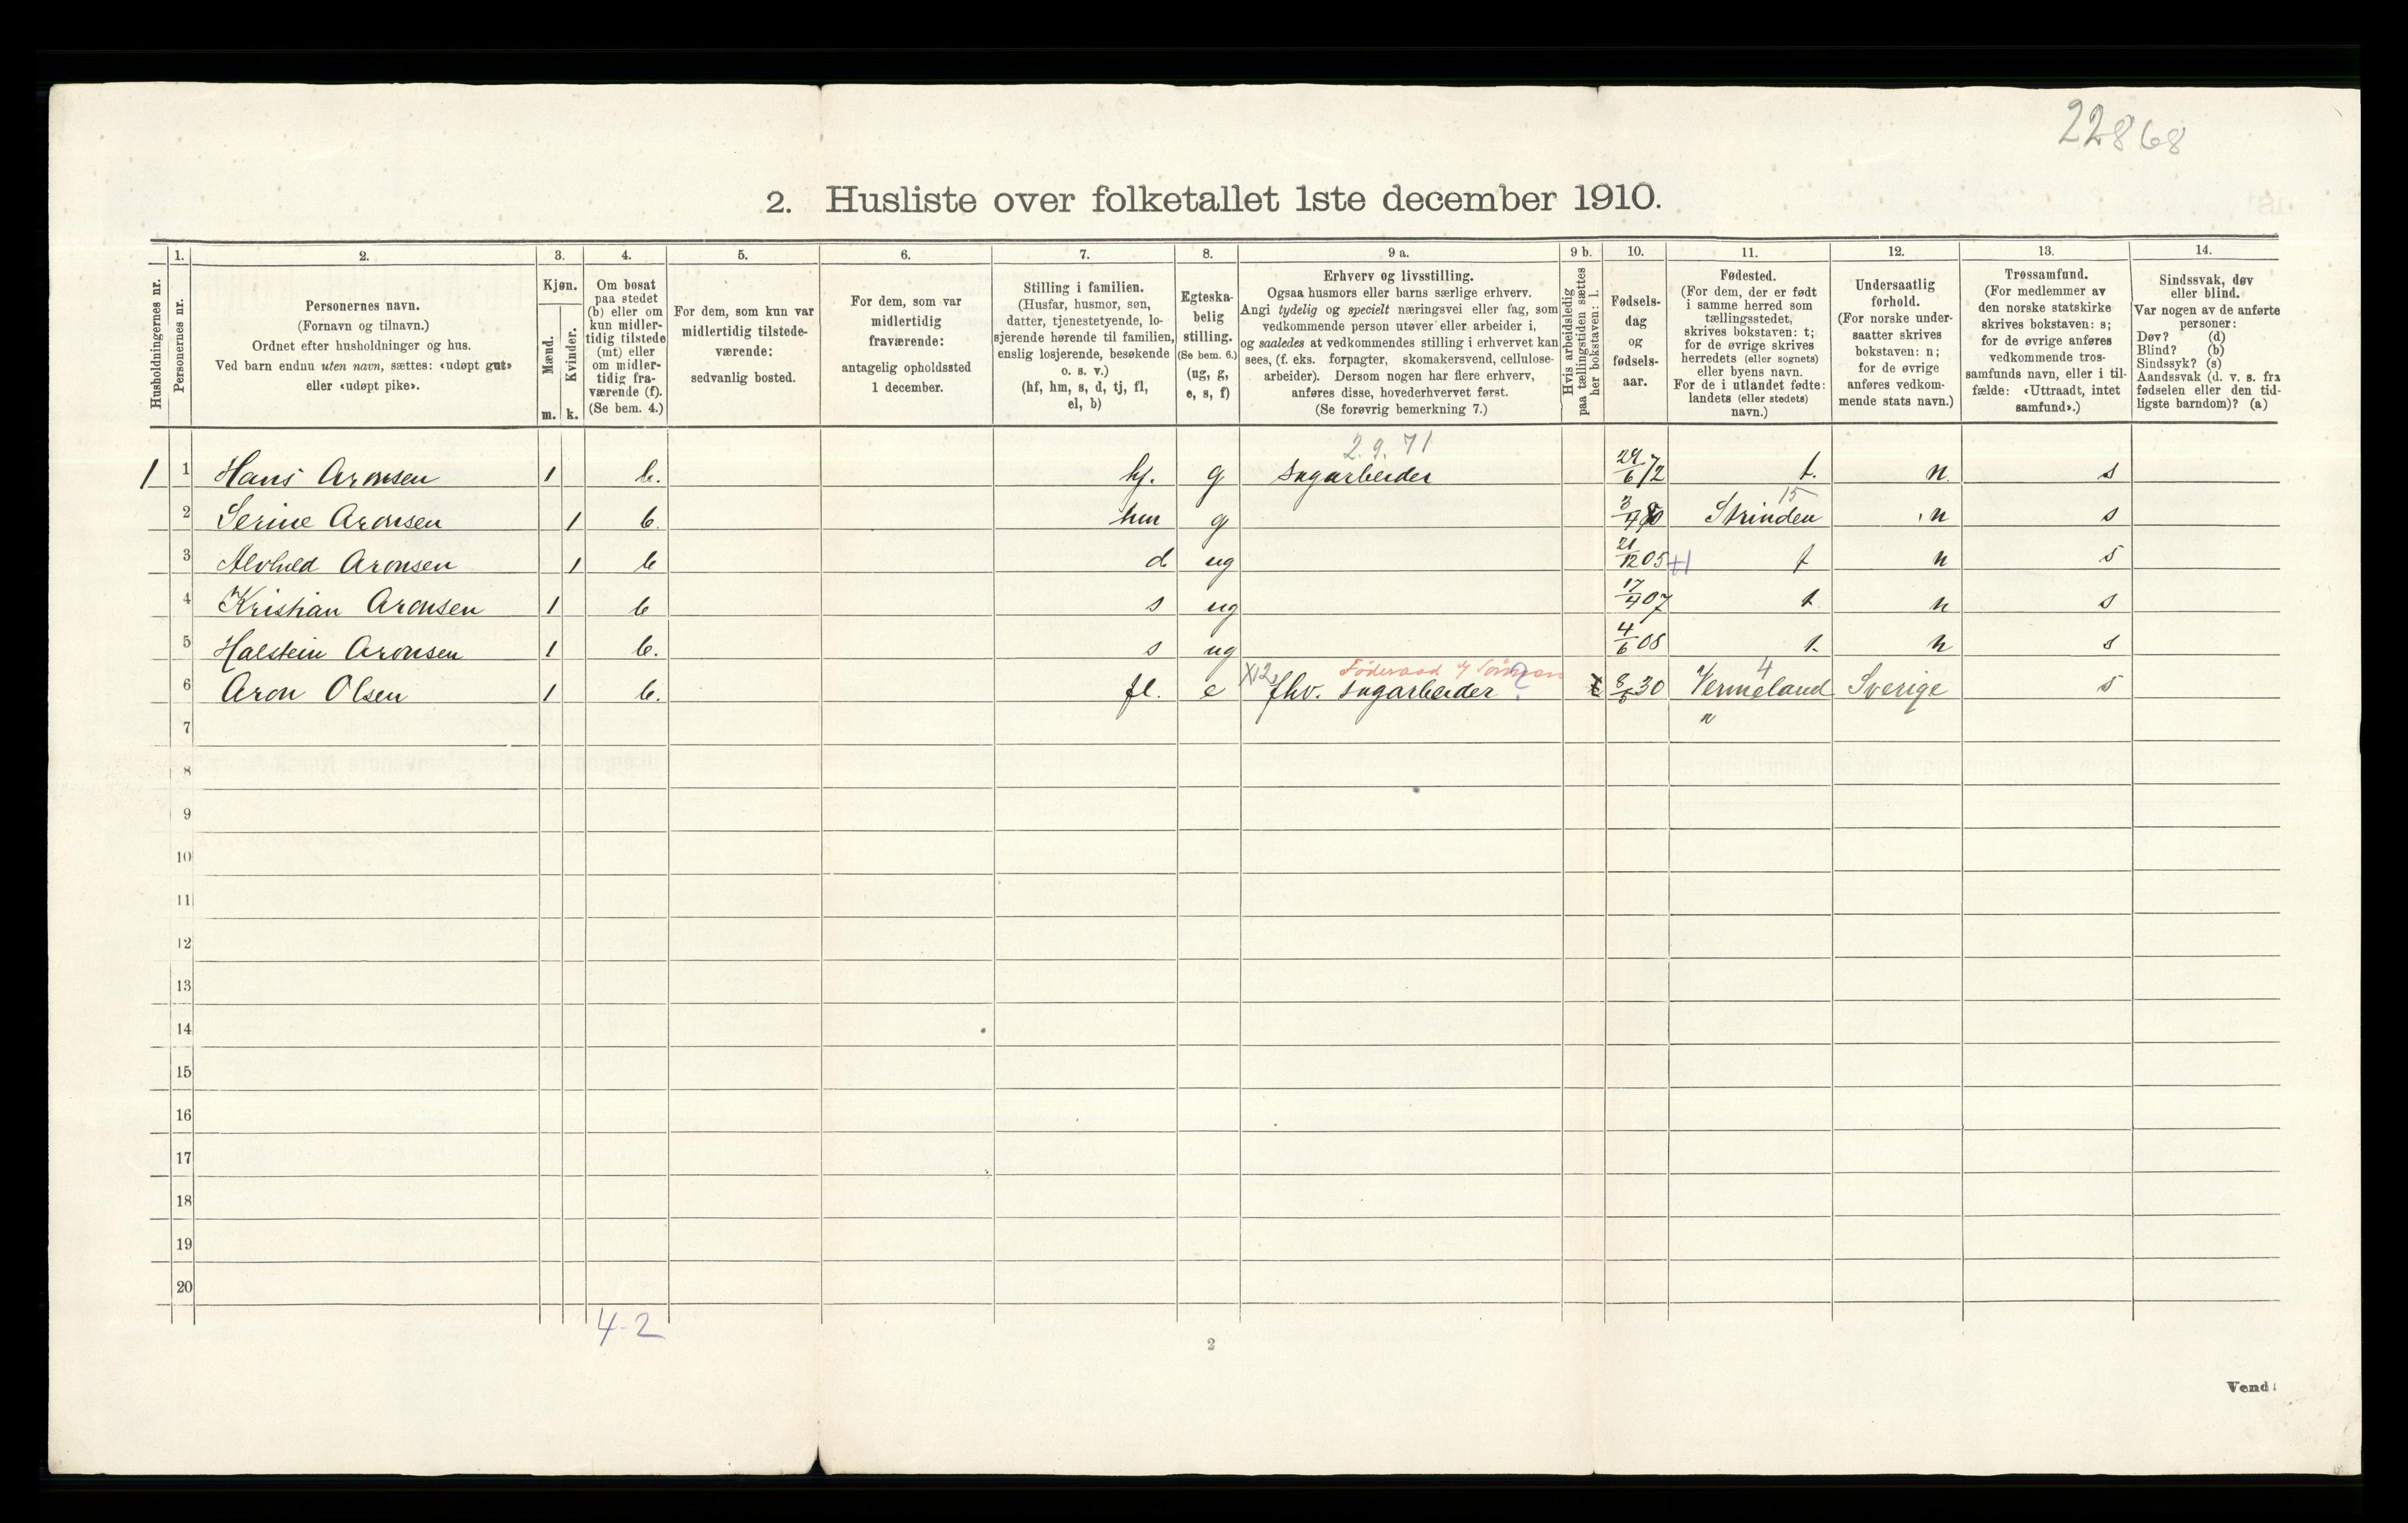 22868
2. Husliste over folketallet 1ste december 1910.
Husholdningernes nr.
1. Personernes nr.
2. Personernes navn.
(Fornavn og tilnavn.)
Ordnet efter husholdninger og hus.
Ved barn endnu uten navn, sættes: «udøpt gut»
eller «udøpt pike».
3. Kjøn.
Mænd. m.
Kvinder. k.
4. Om bosat
paa stedet
(b) eller om
kun midler-
tidig tilstede
(mt) eller
om midler-
tidig fra-
værende (f).
(Se bem. 4.)
5. For dem, som kun var
midlertidig tilstede-
værende:
sedvanlig bosted.
6. For dem, som var
midlertidig
fraværende:
antagelig opholdssted
1 december.
7. Stilling i familien.
(Husfar, husmor, søn,
datter, tjenestetyende, lo-
sjerende hørende til familien,
enslig losjerende, besøkende
o. s. v.)
(hf, hm, s, d, tj, fl,
el, b)
8. Egteska-
belig
stilling.
(Se bem. 6.)
(ug, g,
e, s, f)
9 a. Erhverv og livsstilling.
Ogsaa husmors eller barns særlige erhverv.
Angi tydelig og specielt næringsvei eller fag, som
vedkommende person utøver eller arbeider i,
og saaledes at vedkommendes stilling i erhvervet kan
sees, (f. eks. forpagter, skomakersvend, cellulose-
arbeider). Dersom nogen har flere erhverv,
anføres disse, hovederhvervet først.
(Se forøvrig bemerkning 7.)
9 b. Hvis arbeidsledig
paa tællingstiden sættes
her bokstaven: l.
10. Fødsels-
dag
og
fødsels-
aar.
11. Fødested.
(For dem, der er født
i samme herred som
tællingsstedet,
skrives bokstaven: t;
for de øvrige skrives
herredets (eller sognets)
eller byens navn.
For de i utlandet fødte:
landets (eller stedets)
navn.)
12. Undersaatlig
forhold.
(For norske under-
saatter skrives
bokstaven: n;
for de øvrige
anføres vedkom-
mende stats navn.)
13. Trossamfund.
(For medlemmer av
den norske statskirke
skrives bokstaven: s;
for de øvrige anføres
vedkommende tros-
samfunds navn, eller i til-
fælde: «Uttraadt, intet
samfund».)
14. Sindssvak, døv
eller blind.
Var nogen av de anførte
personer:
Døv? (d)
Blind? (b)
Sindssyk? (s)
Aandssvak (d. v. s. fra
fødselen eller den tid-
ligste barndom)? (a)
2.9.71
1 1 Hans Aronsen 1 b. hf. g Sagarbeider 29/6 72 t. n. s
15
2 Serine Aronsen 1 b hm g 3/4 80 Strinden n s
3 Alvhild Aronsen 1 b d ug 21/12 05 t n s
4 Kristian Aronsen 1 b s ug 17/4 07 t n s
5 Halstein Aronsen 1 b. s ug 4/6 08 t. n s
X12 Føderaad 4
6 Aron Olsen 1 b. fl. e fhv. Sagarbeider ? 8/6 30 Vermeland Sverige s
7 "
8
9
10
11
12
13
14
15
16
17
18
19
20
4-2
2
Vend!